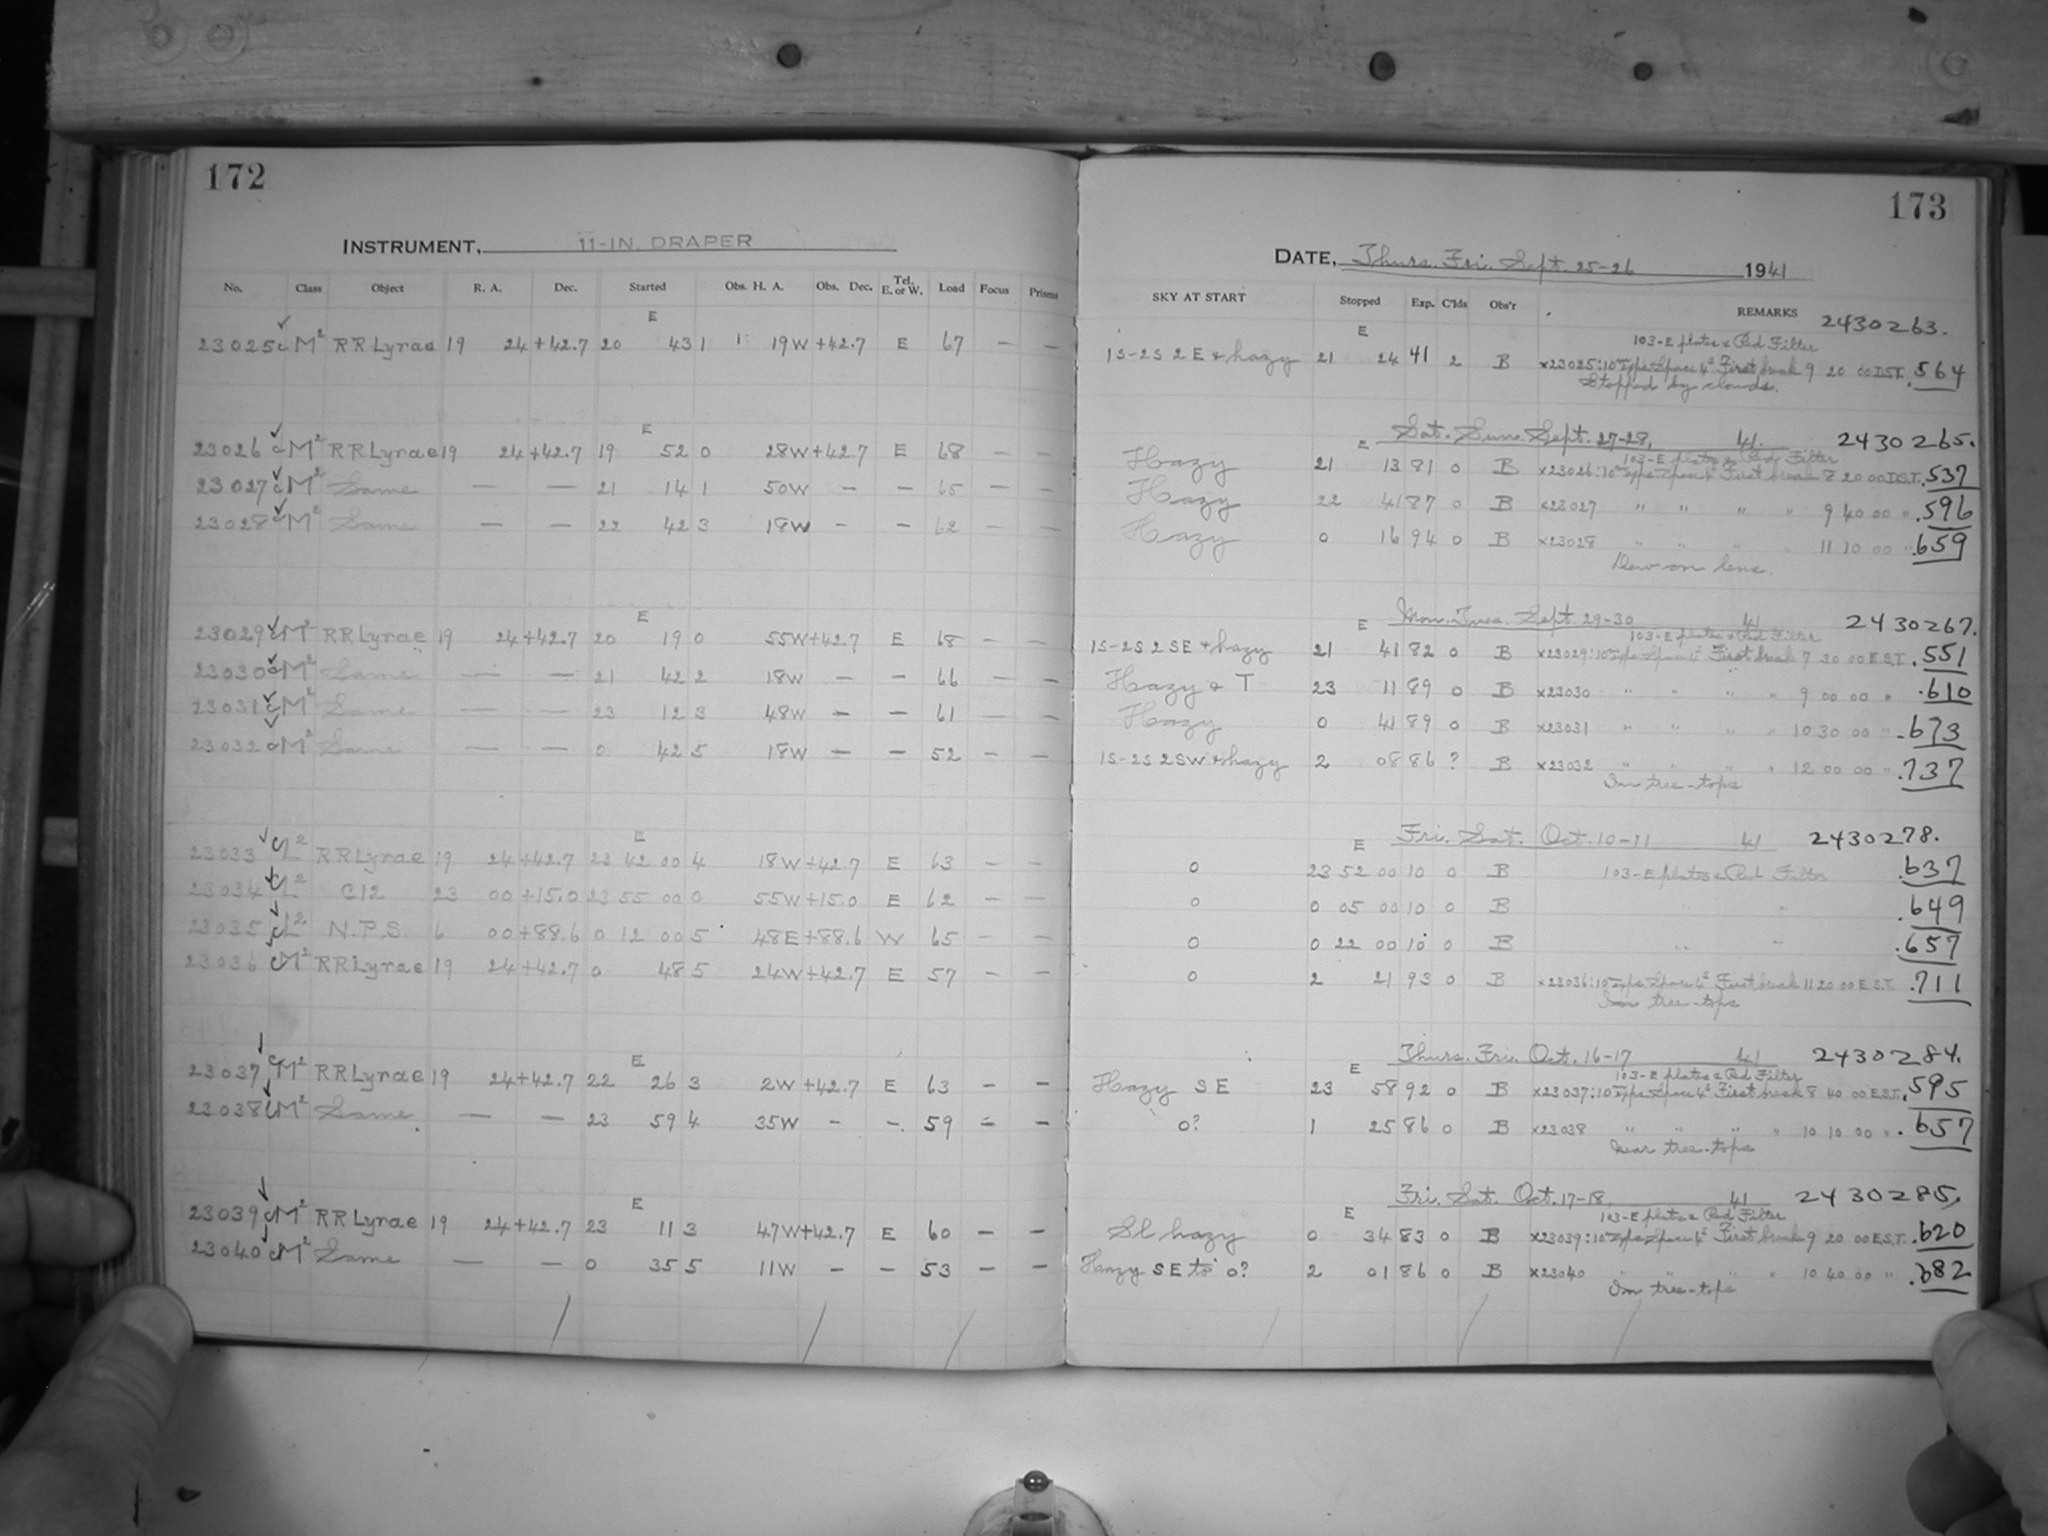 172
INSTRUMENT, 11-IN. DRAPER
No. Class Object R. A. Dec. Started Obs. H. A. Obs. Dec. Tel. E. or W. Load Focus Prisms
E
23025 c M² RR Lyrae 19 24 +42.7 20 43 1 1 19W +42.7 E 67 — —
E
23026 c M² RR Lyrae 19 24 +42.7 19 52 0 28W +42.7 E 68 — —
23027 c M² Same — — 21 14 1 50W — — 65 — —
23028 c M² Same — — 22 42 3 18W — — 62 — —
E
23029 c M² RR Lyrae 19 24 +42.7 20 19 0 55W +42.7 E 68 — —
23030 c M² Same — — 21 42 2 18W — — 66 — —
23031 c M² Same — — 23 12 3 48W — — 61 — —
23032 c M² Same — — 0 42 5 18W — — 52 — —
E
23033 c L² RR Lyrae 19 24 +42.7 23 42 00 4 18W +42.7 E 63 — —
23034 c L² C12 23 00 +15.0 23 55 00 0 55W +15.0 E 62 — —
23035 c L² N.P.S. 6 00 +88.6 0 12 00 5 48E +88.6 W 65 — —
23036 c M² RR Lyrae 19 24 +42.7 0 48 5 24W +42.7 E 57 — —
E
23037 c M² RR Lyrae 19 24 +42.7 22 26 3 2W +42.7 E 63 — —
23038 c M² Same — — 23 59 4 35W — — 59 — —
E
23039 c M² RR Lyrae 19 24 +42.7 23 11 3 47W +42.7 E 60 — —
23040 c M² Same — — 0 35 5 11W — — 53 — —
173
DATE, Thurs. Fri. Sept. 25-26 1941
SKY AT START Stopped Exp. C'lds Obs'r REMARKS
2430263.
E 103-E plates & Red Filter
1S-2S 2E & hazy 21 24 41 2 B x23025: 10 Exps Space 4ˢ First break 9 20 00 D.S.T. .564
Stopped by clouds.
E Sat. Sun. Sept. 27-28, 41. 2430265.
103-E plates & Red Filter
Hazy 21 13 81 0 B x23026: 10 Exps Space 4ˢ First break 8 20 00 D.S.T. .537
Hazy 22 41 87 0 B x23027 " " " " 9 40 00 " .596
Hazy 0 16 94 0 B x23028 " " " " 11 10 00 " .659
Dew on lens.
E Mon. Tues. Sept. 29-30 41 2430267.
103-E plates & Red Filter
1S-2S 2SE & hazy 21 41 82 0 B x23029: 10 Exps Space 4ˢ First break 7 30 00 E.S.T. .551
Hazy & T 23 11 89 0 B x23030 " " " " 9 00 00 " .610
Hazy 0 41 89 0 B x23031 " " " " 10 30 00 " .673
1S-2S 2SW & hazy 2 08 86 ? B x23032 " " " " 12 00 00 " .737
In tree-tops
E Fri. Sat. Oct. 10-11 41 2430278.
0 23 52 00 10 0 B 103-E plates & Red Filter .637
0 0 05 00 10 0 B " " .649
0 0 22 00 10 0 B " " .657
0 2 21 93 0 B x23036: 10 Exps Space 4ˢ First break 11 20 00 E.S.T. .711
In tree-tops
E Thurs. Fri. Oct. 16-17 41 2430284.
103-E plates & Red Filter
Hazy SE 23 58 92 0 B x23037: 10 Exps Space 4ˢ First break 8 40 00 E.S.T. .595
0? 1 25 86 0 B x23038 " " " " 10 10 00 " .657
Near tree-tops
E Fri. Sat. Oct. 17-18, 41 2430285.
103-E plates & Red Filter
Sl hazy 0 34 83 0 B x23039: 10 Exps Space 4ˢ First break 9 20 00 E.S.T. .620
Hazy SE to 0? 2 01 86 0 B x23040 " " " " 10 40 00 " .682
In tree-tops